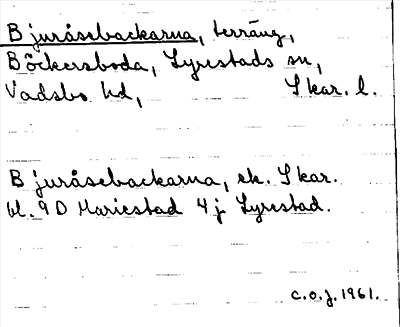 Bjuråsebackarna, terräng,
Böckersboda, Lyrestads sn,
Vadsbo hd, Skar. l.
Bjuråsebackarna, ek. Skar.
bl. 9D Mariestad 4j Lyrestad.
c.o.j. 1961.